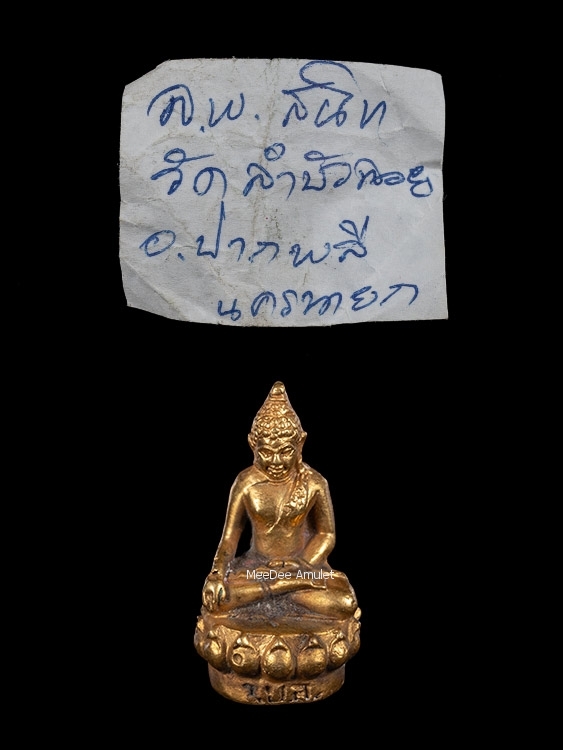 ล.พ. สนิท
วัด ลำบัวลอย
อ.ปากพลี
นครนายก
MeeDee Amulet